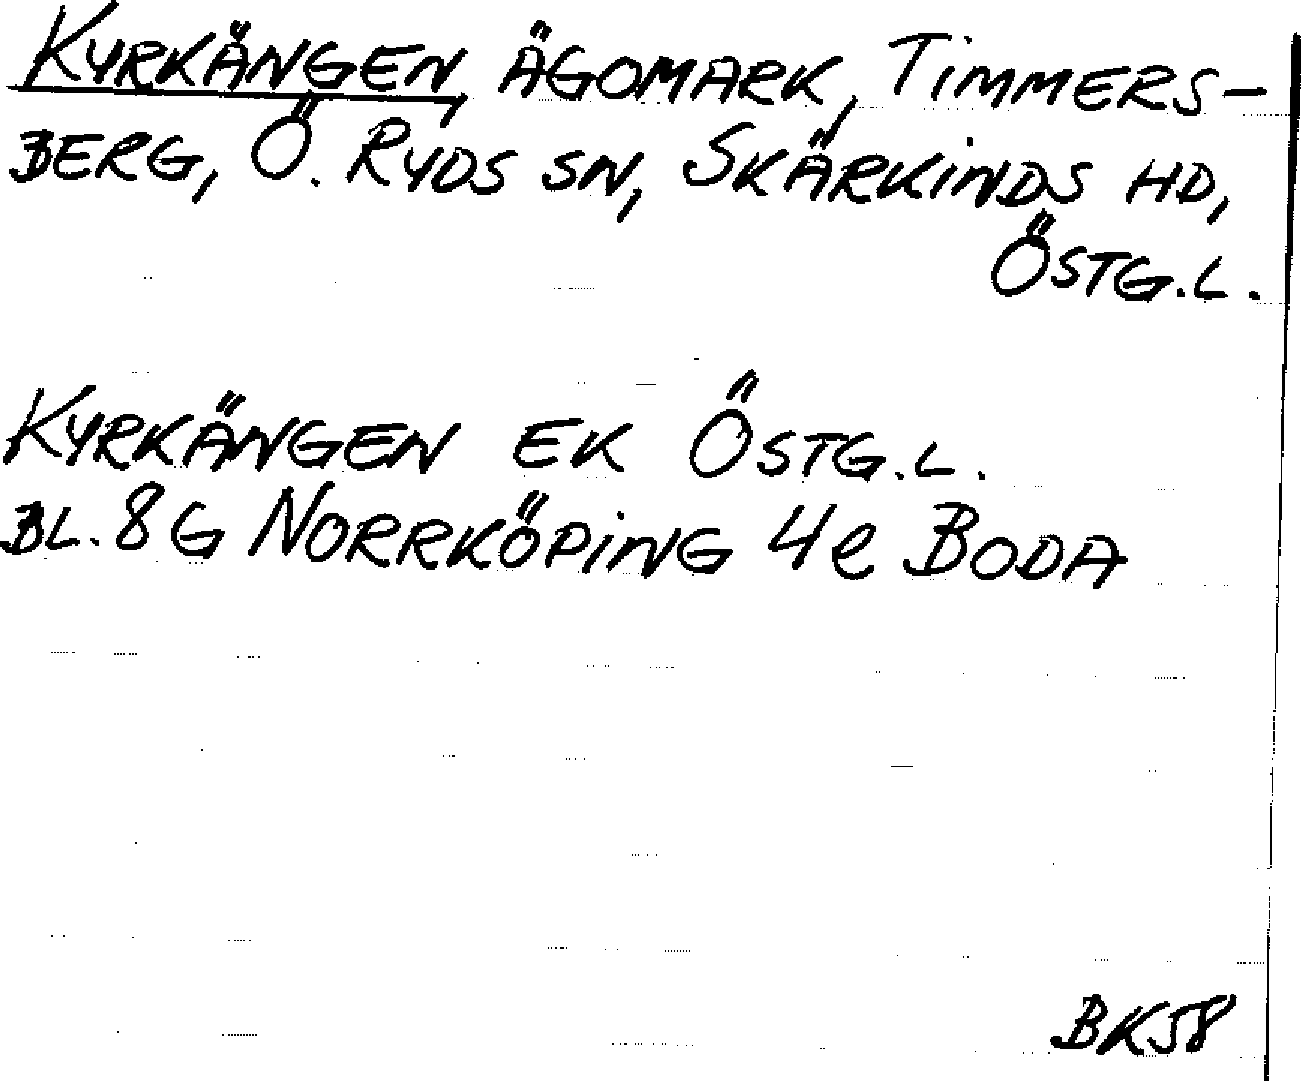 KYRKÄNGEN, ÄGOMARK, TIMMERS-
BERG, Ö. RYDS SN, SKÄRKINDS HD,
ÖSTG.L.
KYRKÄNGEN EK ÖSTG.L.
BL. 8G NORRKÖPING 4e BODA
BK58